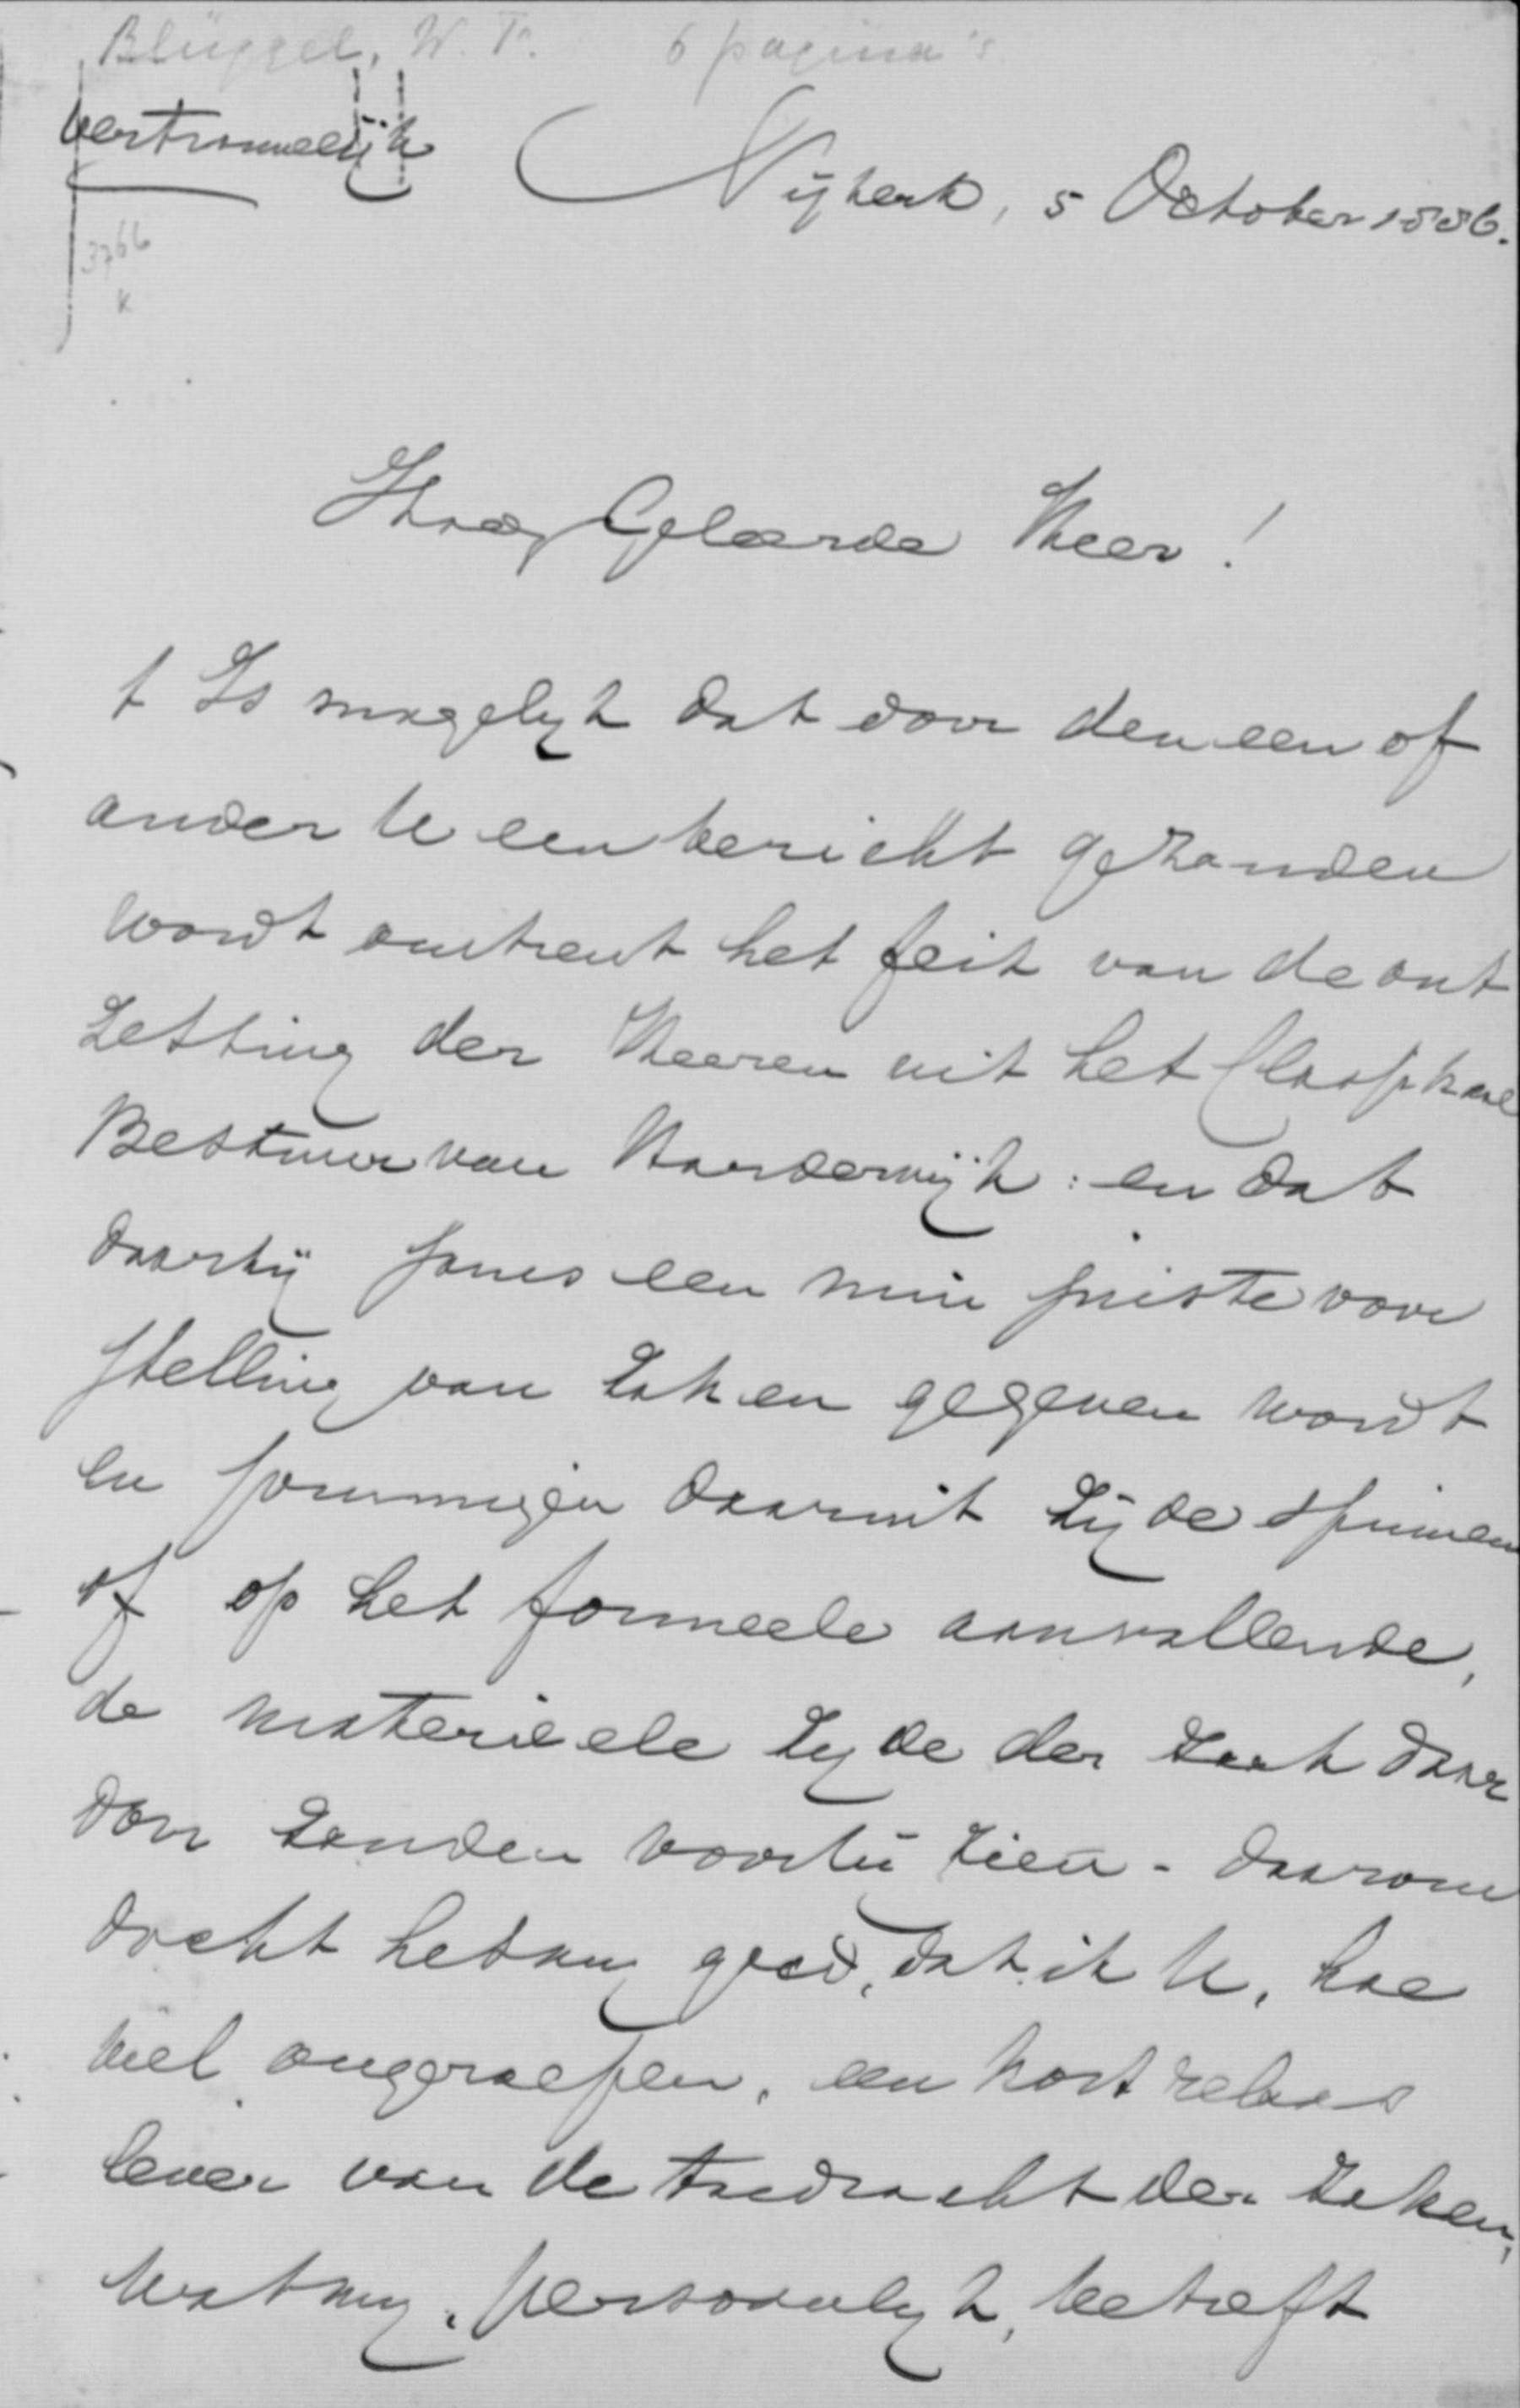 Blüggel, W. Fr. 6 pagina's
Vertrouwelijk
Nijkerk, 5 October 1886.
3766
K
Hoog Geleerde Heer!
t Is mogelyk dat door den een of
ander U een bericht gezonden
wordt omtrent het feit van de ont
zetting der Heeren uit het Classikale
Bestuur van Harderwijk: en dat
daarbij soms een min juiste voor
stelling van zaken gegeven wordt
en sommigen daaruit zijde spinnen
of op het formeele aanvallende,
de materieele zyde der zaak daar
door zouden voorbij zien - daarom
docht het my goed, dat ik U, hoe
wel ongeroepen, een kort relaas
lever van de toedracht der zaken,
Wat my, persoonlyk, betreft